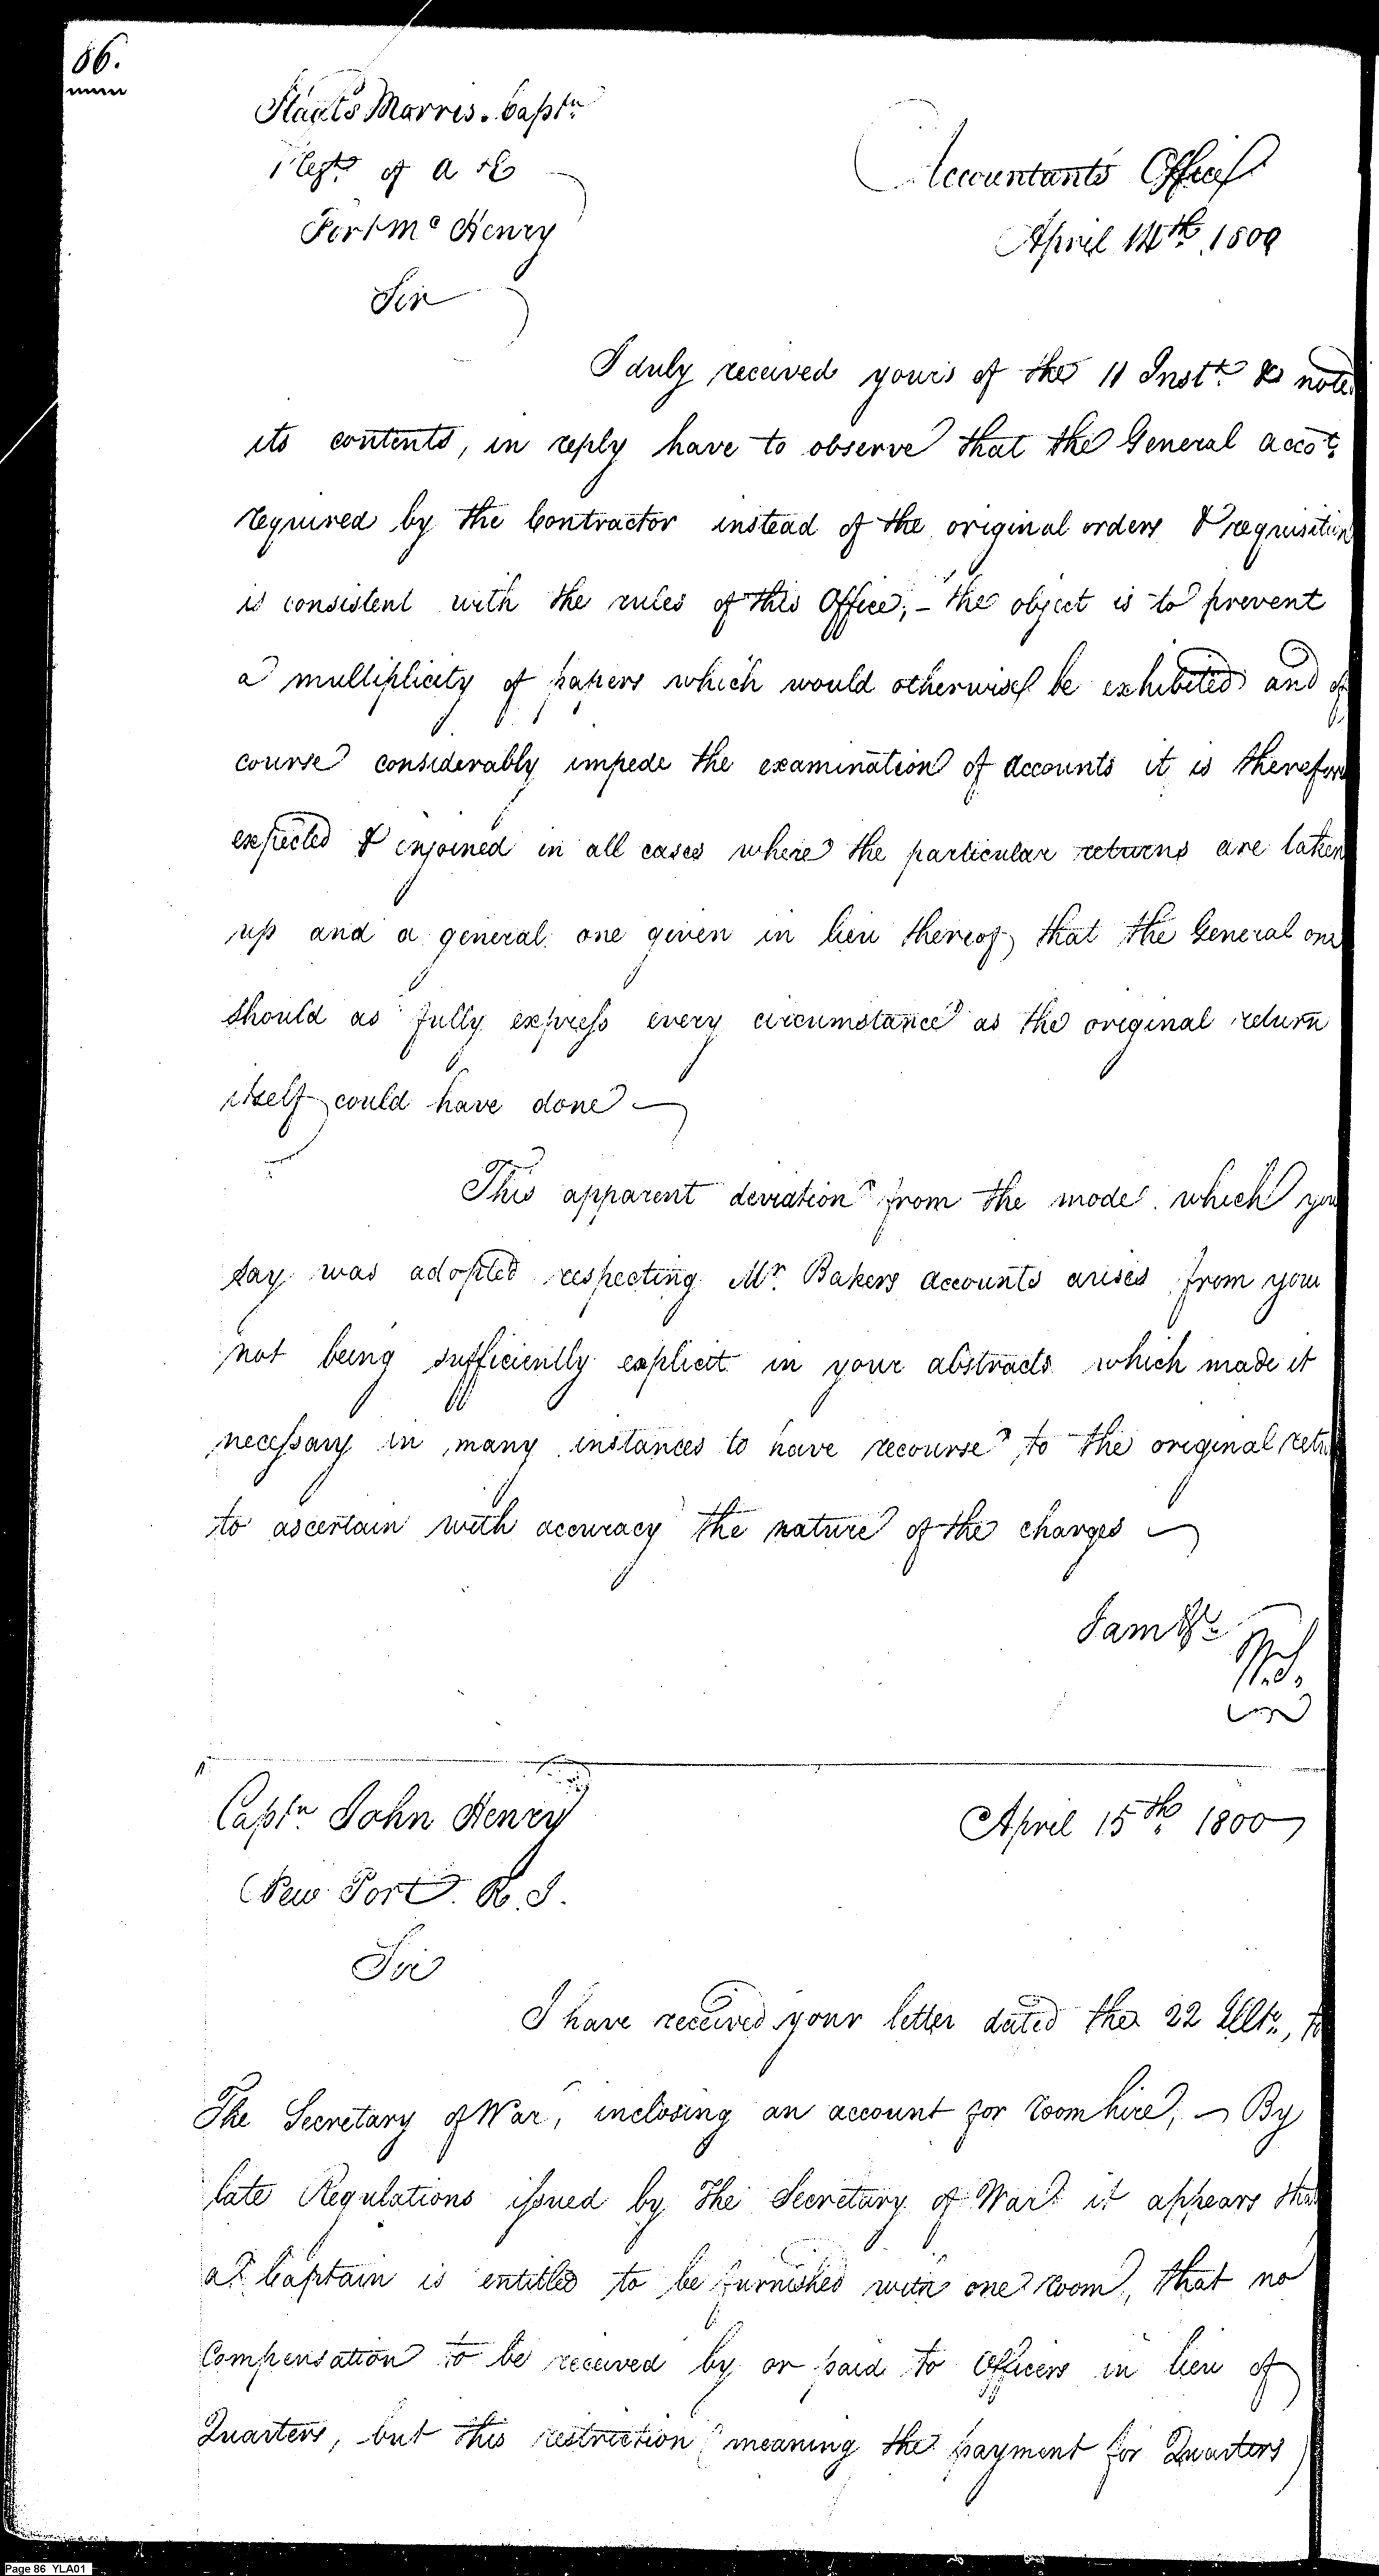 86.
Staats Morris. Captn
Regt. of A & E
Fort Mc Henry
Accountants Office
April 14th. 1800
Sir
I duly received yours of the 11 Instt. & note
its contents, in reply have to observe that the General acco.t
required by the Contractor instead of the original orders & requisition
is consistent with the rules of this Office; - the object is to prevent
a multiplicity of papers which would otherwise be exhibited and of
course considerably impede the examination of accounts it is therefore
expected & enjoined in all cases where the particular returns are taken
up and a general one given in lieu thereof, that the General one
should as fully express every circumstance as the original return
itself could have done
This apparent deviation from the mode which you
say was adopted respecting Mr. Bakers accounts arises from your
not being sufficiently explicit in your abstracts which made it
necessary in many instances to have recourse to the original retu
to ascertain with accuracy the nature of the charges
I am &c
W.S.
Captn. John Henry
New Port. R. I.
April 15th. 1800
Sir
I have received your letter dated the 22 Ulto., to
The Secretary of War, inclosing an account for room hire, - By
late Regulations issued by the Secretary of War it appears tha
a Captain is entitled to be furnished with one room, that no
Compensation to be received by or paid to Officers in lieu of
Quarters, but this restriction (meaning the payment for Quarters)
Page 86 YLA01